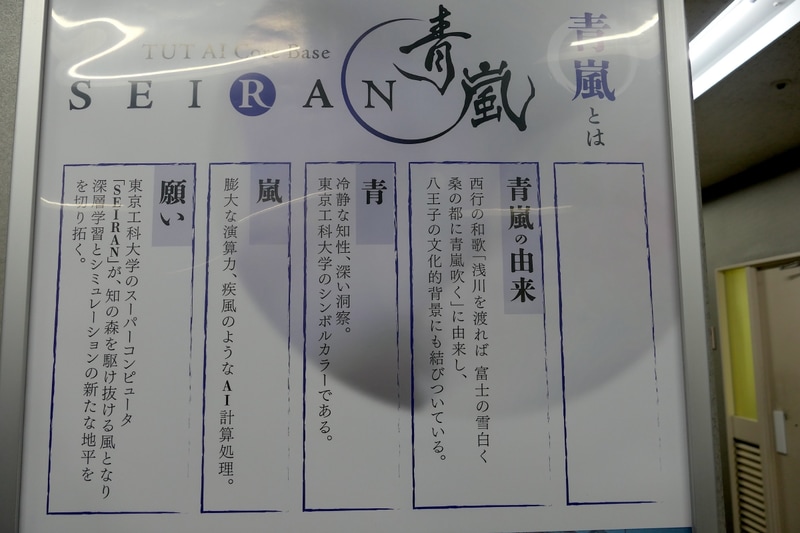 TUT AI Core Base
SEIRAN
青嵐
青嵐とは
青嵐の由来
西行の和歌「浅川を渡れば 富士の雪白く
桑の都に青嵐吹く」に由来し、
八王子の文化的背景にも結びついている。
青
冷静な知性、深い洞察。
東京工科大学のシンボルカラーである。
嵐
膨大な演算力、疾風のようなAI計算処理。
願い
東京工科大学のスーパーコンピュータ
「SEIRAN」が、知の森を駆け抜ける風となり
深層学習とシミュレーションの新たな地平を
を切り拓く。